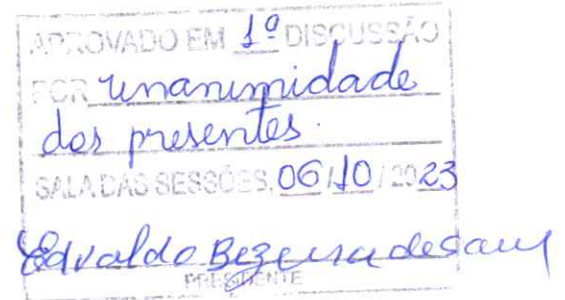 APROVADO EM 1º DISCUSSÃO
POR unanimidade
dos presentes.
SALA DAS SESSÕES, 06/10/2023
Edvaldo Bezerra de
PRESIDENTE